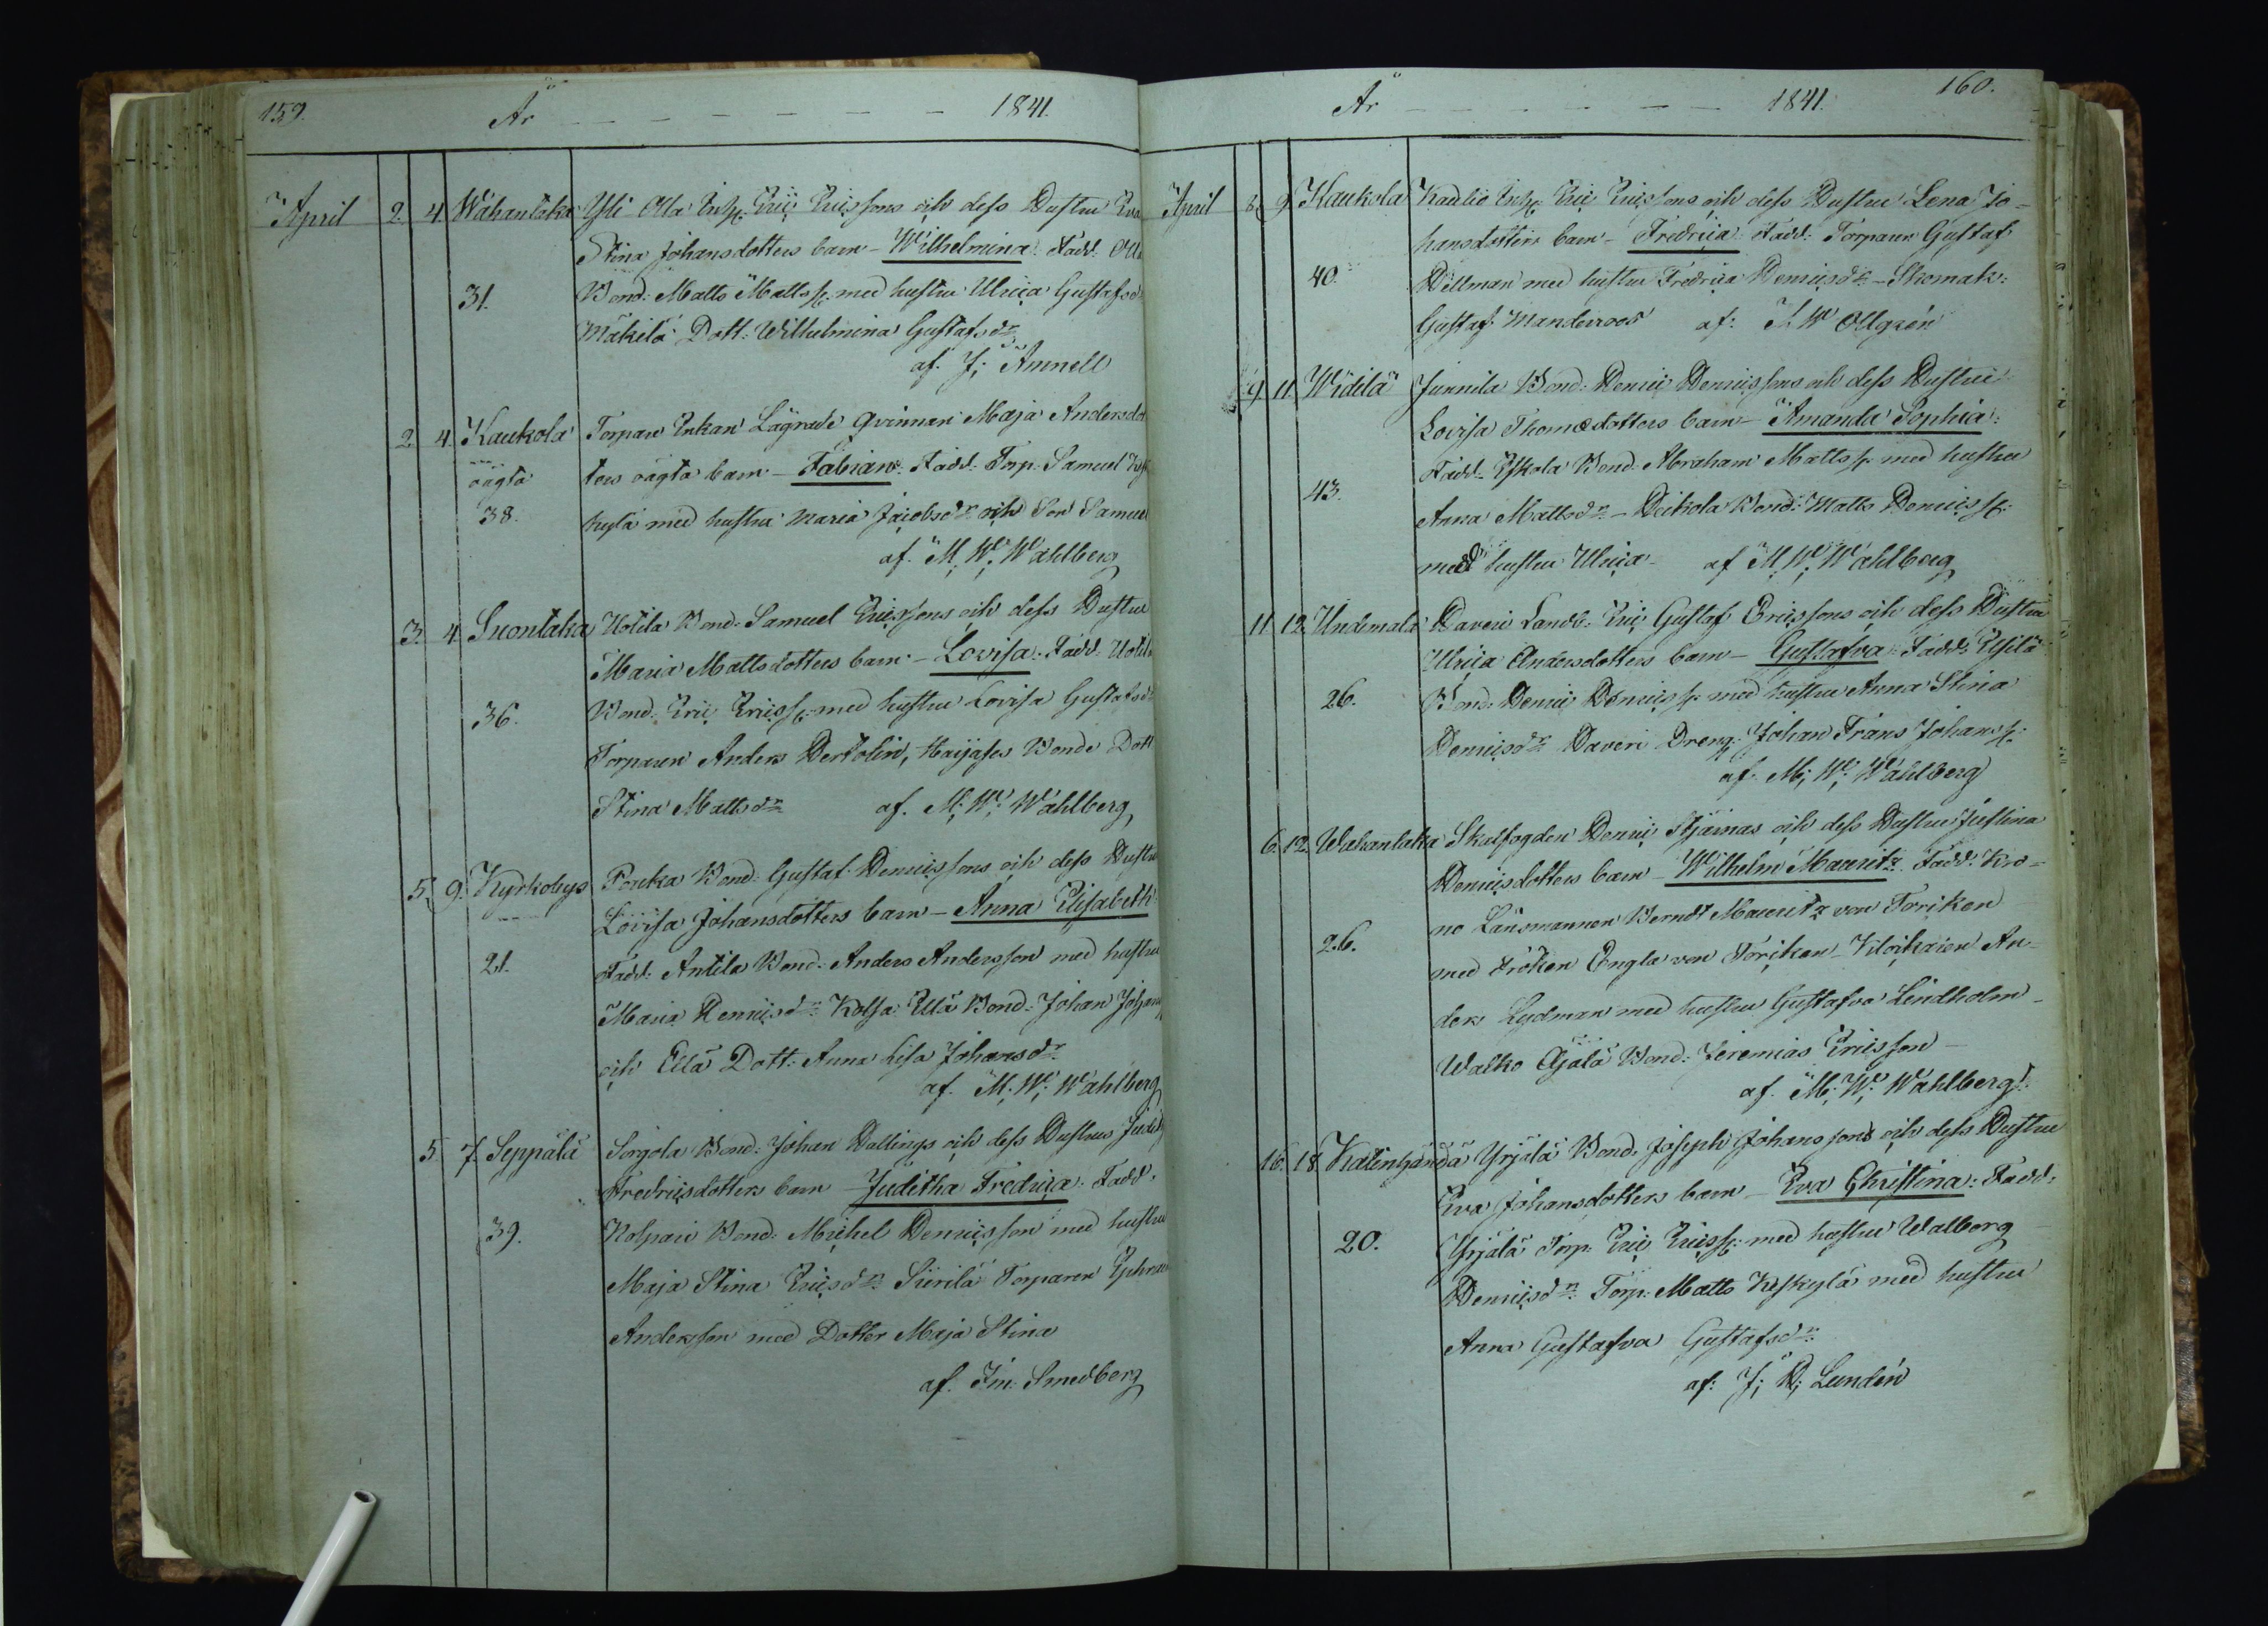 159. År 1841.
April 2. 4. Wahantaka Yli Olla Inh. Eric Ericssons och dess Hustru Eva
Stina Johansdotters barn - Wilhelmina. Fadd: Olla
31. Bond: Matts Mattss: med hustru Ulrica Gustafsdr
Mäkilä Dott: Wilhelmina Gustafsdr
af. J; Amnell
2. 4. Kaukola Torpare Enkan Lägrade qvinnan Maja Andersdot
oägta ters oägta barn - Fabian. Fadd: Torp: Samuel Kesk
38. kylä med hustru Maria Jacobsdr och Son Samuel
af. M; W; Wahlberg
3. 4. Suontaka Uotila Bond: Samuel Ericssons och dess Hustru
Maria Mattsdotters barn - Lovisa: Fadd: Uotila
36. Bond: Eric Ericss: med hustru Lovisa Gustafsdr
Torparen Anders Bertolin, Bonde Dott
Stina Mattsdr af. M; W; Wahlberg
5. 9. Kyrkobys Pouka Bond: Gustaf Henricssons och dess Hustru
Lovisa Johansdotters barn - Anna Elisabeth
21. Fadd: Antila Bond: Anders Andersson med hustru
Maria Henricsdr Kolsa Ellä Bond: Johan Johans
och Ellä Dott: Anna Lisa Johansdr
af. M; W; Wahlberg
5. 7. Seppälä Sorgola Bond: Johan Hallings och dess Hustrus Judith
Fredricsdotters barn - Juditha Fredrica: Fadd:
39. Kolpari Bond: Michel Henricsson med hustru
Maja Stina Ericsdr Siirilä Torparen Ephraim
Andersson med Dotter Maja Stina
af. Im: Smedberg
År 1841. 160.
April 8. 9. Kaukola Kaulio Inh: Eric Ericssons och dess Hustru Lena Jo=
hansdotters barn - Fredrica: Fadd: Torparen Gustaf
40. Hellman med hustru Fredrica Henricsdr - Skomak:
Gustaf Manderroos af: A W Ollgrén
9. 11. Widilä Junnila Bond: Henric Henricssons och dess Hustru
Lovisa Thomædotters barn - Amanda Sophia:
Fadd: Eskola Bond: Abraham Mattss: med hustru
43. Anna Mattsdr - Heikola Bond: Matts Henricss:
med hustru Ulrica - af M; W; Wahlberg
11. 12. Undemala Haveri Landb: Eric Gustaf Ericssons och dess Hustru
Ulrica Andersdotters barn - Gustafva: Fadd:
26. Bond: Henric Henricss: med hustru Anna Stina
Henricsdr Haveri Dreng: Johan Frans Johanss:
af. M; W; Wahlberg
6. 12. Wahantaka Skalfogden Henric Stjärnas och dess Hustru Justina
Henricsdotters barn - Wilhelm Mauritz. Fadd: Kro=
no Länsmannen Berndt Mauritz von Foriken
26. med Fröken Engla von Foriken - An=
ders Lydman med hustru Gustafva Lindholm -
Walko Äjälä Bond: Jeremias Ericsson -
af. M; W; Wahlberg:
16. 18. Kalinhändä Yrjälä Bond: Joseph Johanssons och dess Hustru
Eva Johansdotters barn - Eva Christina: Fadd:
20. Yrjälä Torp: Eric Ericss: med hustru Walborg
Henricsdr. Torp: Matts Keskylä med hustru
Anna Gustafva Gustafsdr
af: J; H; Lundén